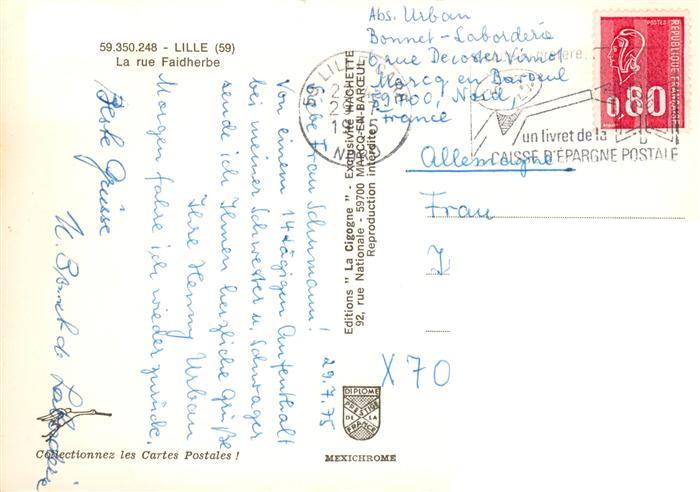 59.350.248 - LILLE (59)
La rue Faidherbe
29.7.75
Liebe Frau Schumann!
Von einem 14tägigen Aufenthalt
bei meiner Schwester u. Schwager
sende ich Ihnen herzliche Grüße
Ihre Henny Urban
Morgen fahre ich wieder zurück.
Beste Grüsse
Collectionnez les Cartes Postales !
Editions " La Cigogne " - Exclusivité HACHETTE
92, rue Nationale - 59700 MARCQ-EN-BARŒUL
Reproduction interdite
DIPLOME
PRESTIGE
DE LA
FRANCE
MEXICHROME
Abs. Urban
Bonnet-Laborderie
6 rue Decoster Virnot
Marcq en Baroeul
59700, Nord,
France
59 LILLE
REPUBLIQUE FRANÇAISE
POSTES
0,80
un livret de la
CAISSE D'EPARGNE POSTALE
Allemagne
Frau
X 70